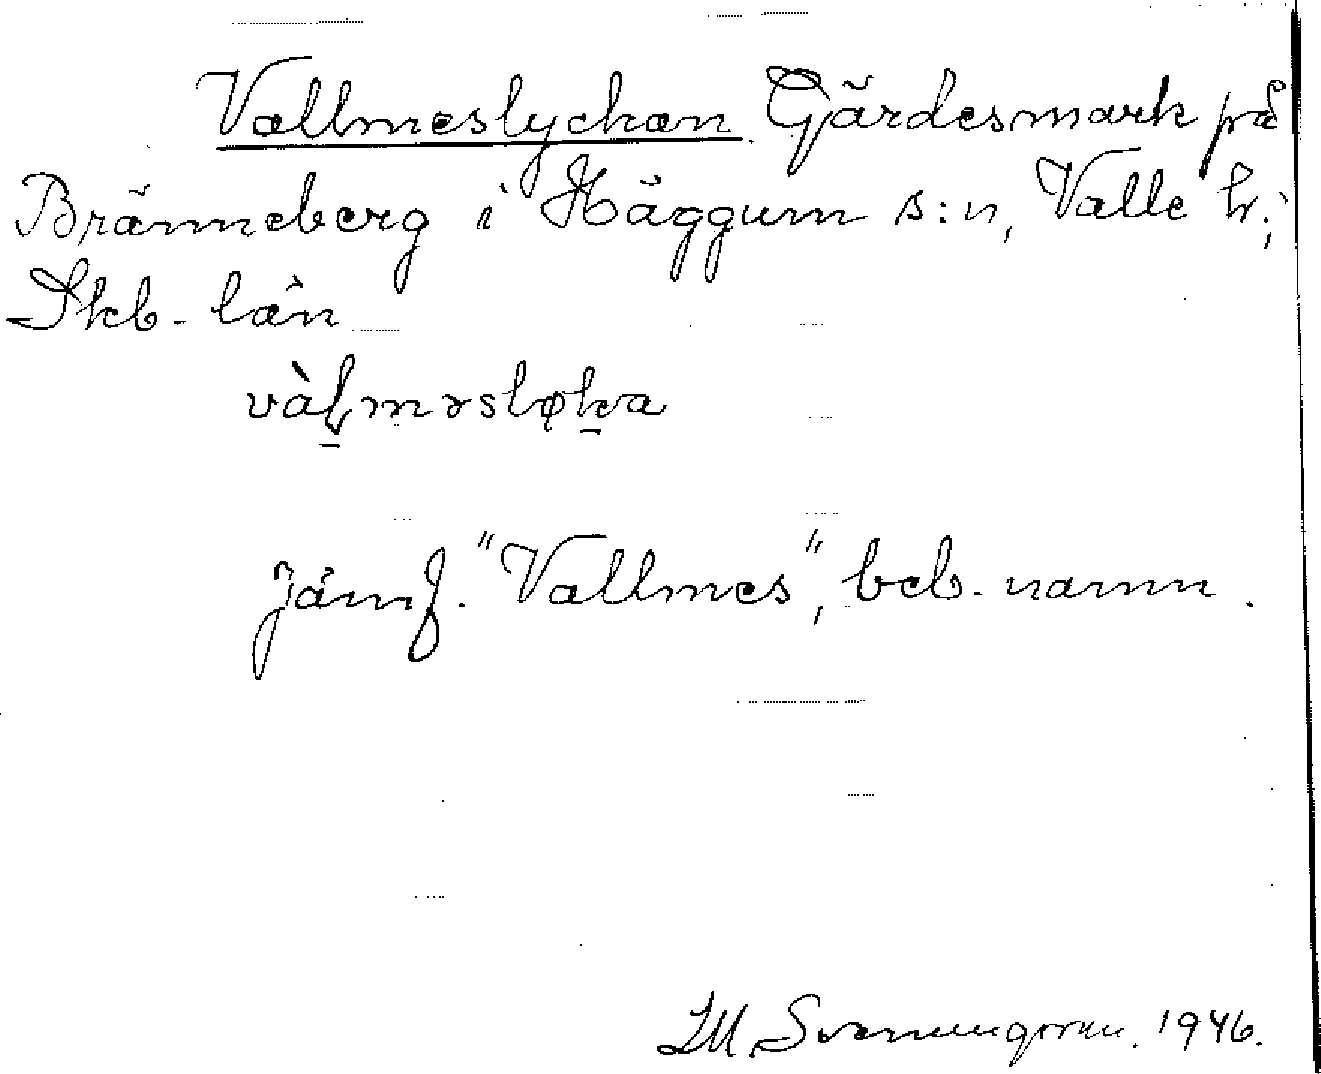 Vallmeslyckan. Gärdesmark på
Bränneberg i Häggum s:n, Valle hr;
Skb-län
vàḻməsløḵa
Jämf. "Vallmes", beb. namn.
Svenungsson. 1946.